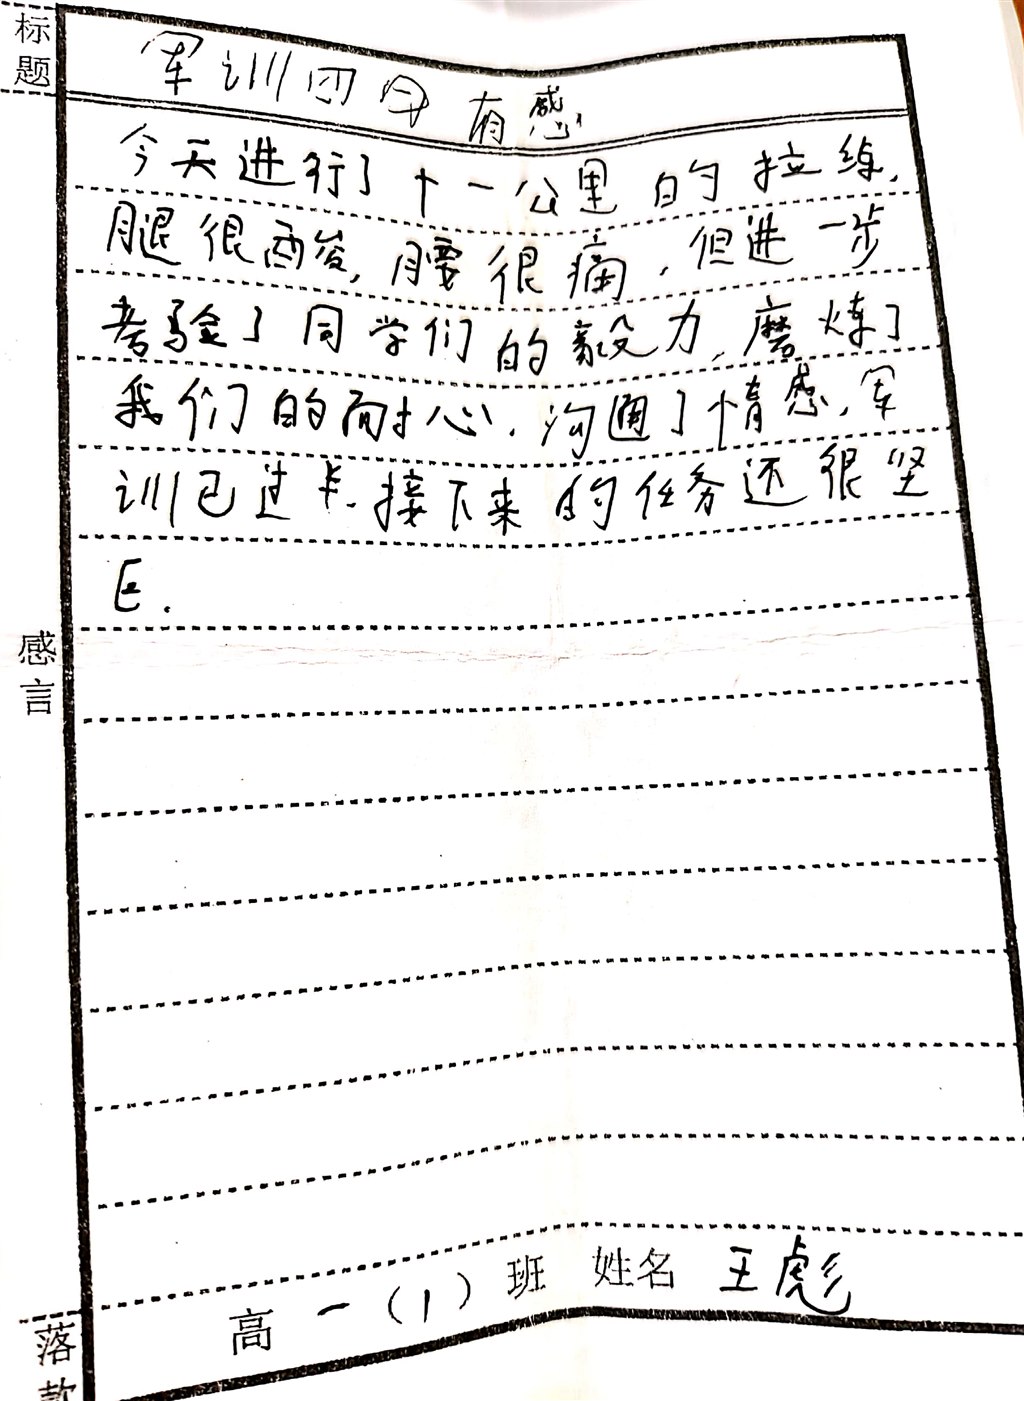 标题
军训四日有感
今天进行了十一公里的拉练,
腿很酸,腰很痛,但进一步
考验了同学们的毅力,磨炼了
我们的耐心,沟通了情感,军
训已过半,接下来的任务还很坚
巨.
感言
高一(1)班 姓名 王彪
落款